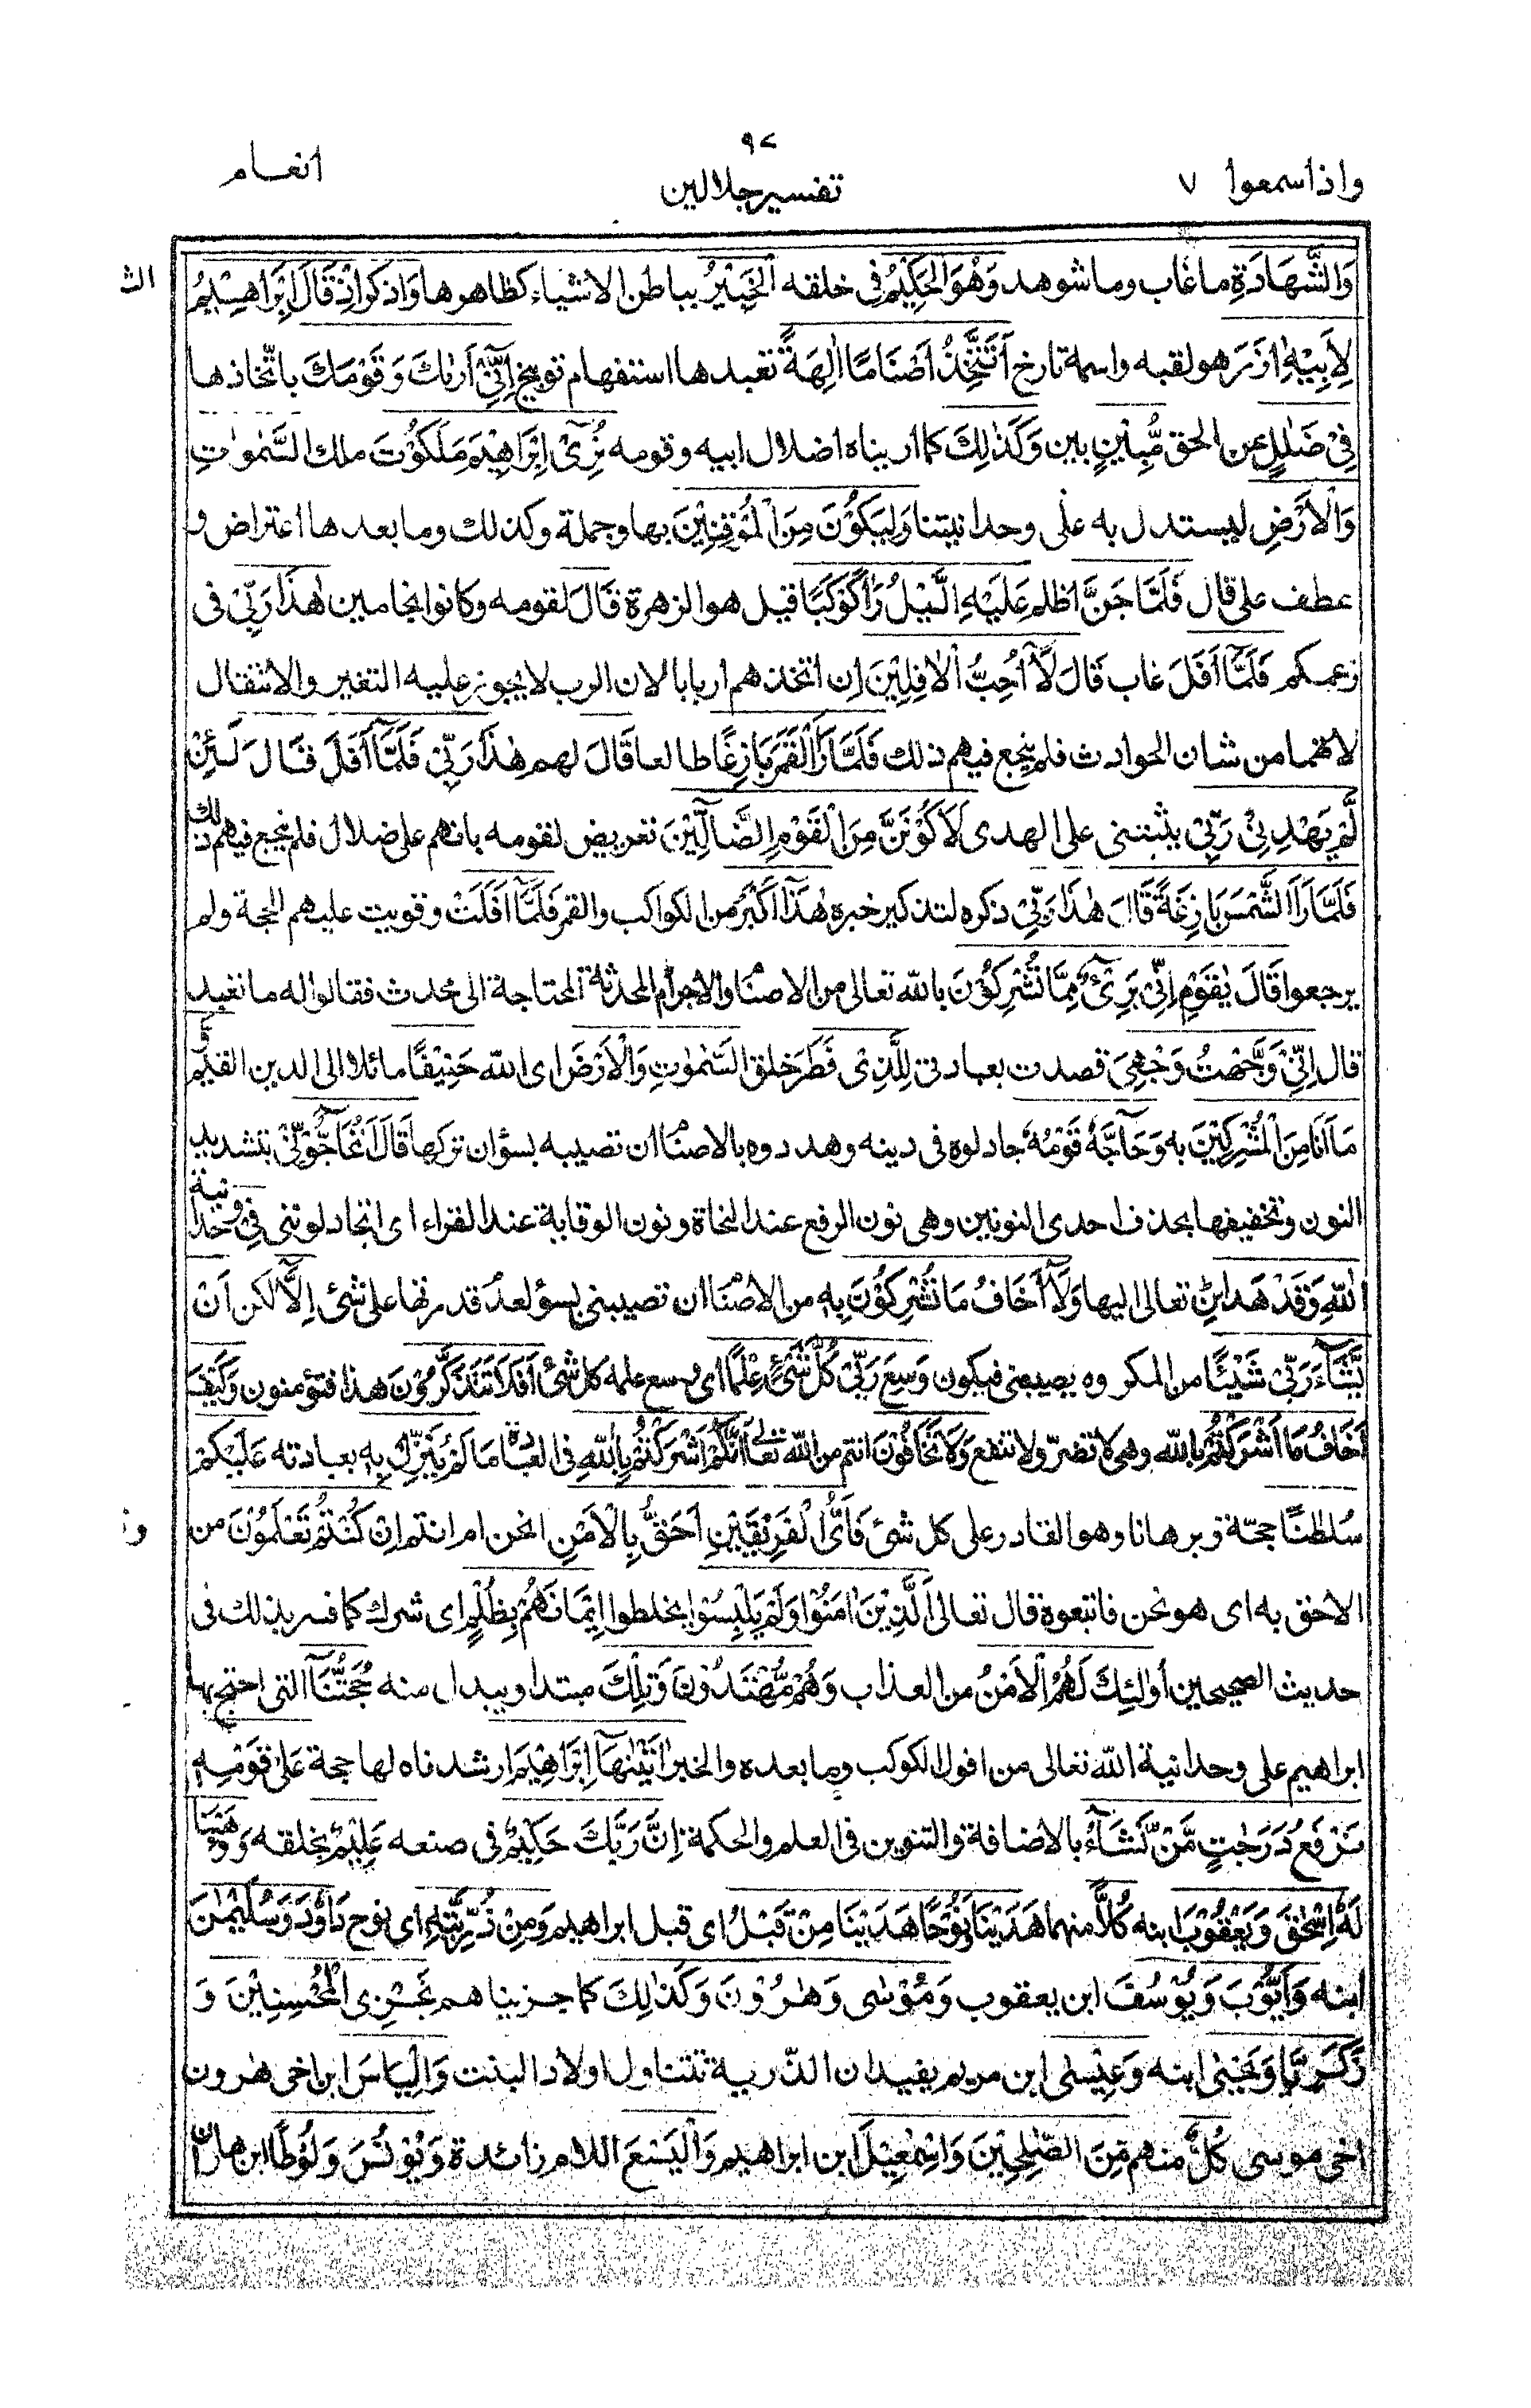 ٩٢
واذاسمعوا ٧
تفسيرجلالين
انعام
وَالشَّهَادَةِ ماغاب وماشوهد وَهُوَ الْحَكِيْمُ فى خلقه الْخَبِيْرُ بباطن الاشياء كظاهرها وَاذكر اِذْ قَالَ اِبْرَاهِيْمُ
لِاَبِيْهِ اٰزَرَ هولقبه واسمه تارخ اَتَتَّخِذُ اَصْنَامًا اٰلِهَةً تعبدها استفهام توبيخ اِنِّىْٓ اَرٰىكَ وَقَوْمَكَ باتّخاذها
فِىْ ضَلٰلٍ عن الحق مُّبِيْنٍ بين وَكَذٰلِكَ كما اريناه اضلال ابيه وقومه نُرِىْٓ اِبْرَاهِيْمَ مَلَكُوْتَ ملك السَّمٰوٰتِ
وَالْاَرْضِ ليستدل به على وحدانيتنا وَلِيَكُوْنَ مِنَ الْمُوْقِنِيْنَ بها وجملة وكذلك ومابعدها اعتراض و
عطف على قال فَلَمَّا جَنَّ اظلم عَلَيْهِ الَّيْلُ رَاٰ كَوْكَبًا قيل هو الزهرة قَالَ لقومه وكانوا نجامين هٰذَا رَبِّىْ فى
زعمكم فَلَمَّآ اَفَلَ غاب قَالَ لَآ اُحِبُّ الْاٰفِلِيْنَ ان اتخذهم اربابا لان الرب لا يجوز عليه التغير والانتقال
لانهما من شان الحوادث فلم ينجع فيهم ذلك فَلَمَّا رَاَ الْقَمَرَ بَازِغًا طالعا قَالَ لهم هٰذَا رَبِّىْ فَلَمَّآ اَفَلَ قَالَ لَئِنْ
لَّمْ يَهْدِنِىْ رَبِّىْ يثبتنى على الهدى لَاَكُوْنَنَّ مِنَ الْقَوْمِ الضَّآلِّيْنَ تعريض لقومه بانهم على ضلال فلم ينجع فيهم ذلك
فَلَمَّا رَاَ الشَّمْسَ بَازِغَةً قَالَ هٰذَا رَبِّىْ ذكره لتذكير خبره هٰذَآ اَكْبَرُ من الكواكب والقمر فَلَمَّآ اَفَلَتْ وقويت عليهم الحجة ولم
يرجعوا قَالَ يٰقَوْمِ اِنِّىْ بَرِىْٓءٌ مِّمَّا تُشْرِكُوْنَ بالله تعالى من الاصنام والاجرام المحدثة المحتاجة الى محدث فقالوا له ما تعبد
قال اِنِّىْ وَجَّهْتُ وَجْهِىَ قصدت بعبادتى لِلَّذِىْ فَطَرَ خلق السَّمٰوٰتِ وَالْاَرْضَ اى الله حَنِيْفًا مائلا الى الدين القيم وَّ
مَآ اَنَا مِنَ الْمُشْرِكِيْنَ به وَحَآجَّهٗ قَوْمُهٗ جادلوه فى دينه وهددوه بالاصنام ان تصيبه بسوٓء ان تركها قَالَ اَتُحَآجُّوْٓنِّىْ بتشديد
النون وتخفيفها بحذف احدى النونين وهى نون الرفع عند النحاة ونون الوقاية عند القراء اى اتجادلوننى فِىْ وحدانية
اللّٰهِ وَقَدْ هَدٰىنِ تعالى اليها وَلَآ اَخَافُ مَا تُشْرِكُوْنَ بِهٖ من الاصنام ان تصيبنى بسوٓء لعدم قدرتها على شئ اِلَّآ لكن اَنْ
يَّشَآءَ رَبِّىْ شَيْـًٔا من المكروه يصيبنى فيكون وَسِعَ رَبِّىْ كُلَّ شَىْءٍ عِلْمًا اى وسع علمه كل شئ اَفَلَا تَتَذَكَّرُوْنَ هذا فتؤمنون وَكَيْفَ
اَخَافُ مَآ اَشْرَكْتُمْ بالله وهى لا تضرّ ولا تنفع وَلَا تَخَافُوْنَ انتم من الله تعالى اَنَّكُمْ اَشْرَكْتُمْ بِاللّٰهِ فى العبادة مَا لَمْ يُنَزِّلْ بِهٖ بعبادته عَلَيْكُمْ
سُلْطٰنًا حجّة وبرهانا وهو القادر على كل شئ فَاَىُّ الْفَرِيْقَيْنِ اَحَقُّ بِالْاَمْنِ انحن ام انتم اِنْ كُنْتُمْ تَعْلَمُوْنَ من
الاحق به اى هو نحن فاتبعوه قال تعالى اَلَّذِيْنَ اٰمَنُوْا وَلَمْ يَلْبِسُوْا يخلطوا اِيْمَانَهُمْ بِظُلْمٍ اى شرك كما فسر بذلك فى
حديث الصحيحين اُولٰٓئِكَ لَهُمُ الْاَمْنُ من العذاب وَهُمْ مُّهْتَدُوْنَ وَتِلْكَ مبتدا ويبدل منه حُجَّتُنَآ التى احتج بها
ابراهيم على وحدانية الله تعالى من افول الكوكب وما بعده والخبر اٰتَيْنٰهَآ اِبْرَاهِيْمَ ارشدناه لها حجة عَلٰى قَوْمِهٖ
نَرْفَعُ دَرَجٰتٍ مَّنْ نَّشَآءُ بالاضافة والتنوين فى العلم والحكمة اِنَّ رَبَّكَ حَكِيْمٌ فى صنعه عَلِيْمٌ بخلقه وَوَهَبْنَا
لَهٗٓ اِسْحٰقَ وَيَعْقُوْبَ ابنه كُلًّا منهما هَدَيْنَا وَنُوْحًا هَدَيْنَا مِنْ قَبْلُ اى قبل ابراهيم وَمِنْ ذُرِّيَّتِهٖ اى نوح دَاوٗدَ وَسُلَيْمٰنَ
ابنه وَاَيُّوْبَ وَيُوْسُفَ ابن يعقوب وَمُوْسٰى وَهٰرُوْنَ وَكَذٰلِكَ كما جزيناهم نَجْزِى الْمُحْسِنِيْنَ وَ
زَكَرِيَّا وَيَحْيٰى ابنه وَعِيْسٰى ابن مريم يفيد ان الذّرية تتناول اولاد البنت وَاِلْيَاسَ ابن اخى هٰرون
اخى موسى كُلٌّ منهم مِّنَ الصّٰلِحِيْنَ وَاِسْمٰعِيْلَ ابن ابراهيم وَالْيَسَعَ اللام زائدة وَيُوْنُسَ وَلُوْطًا ابن هاران